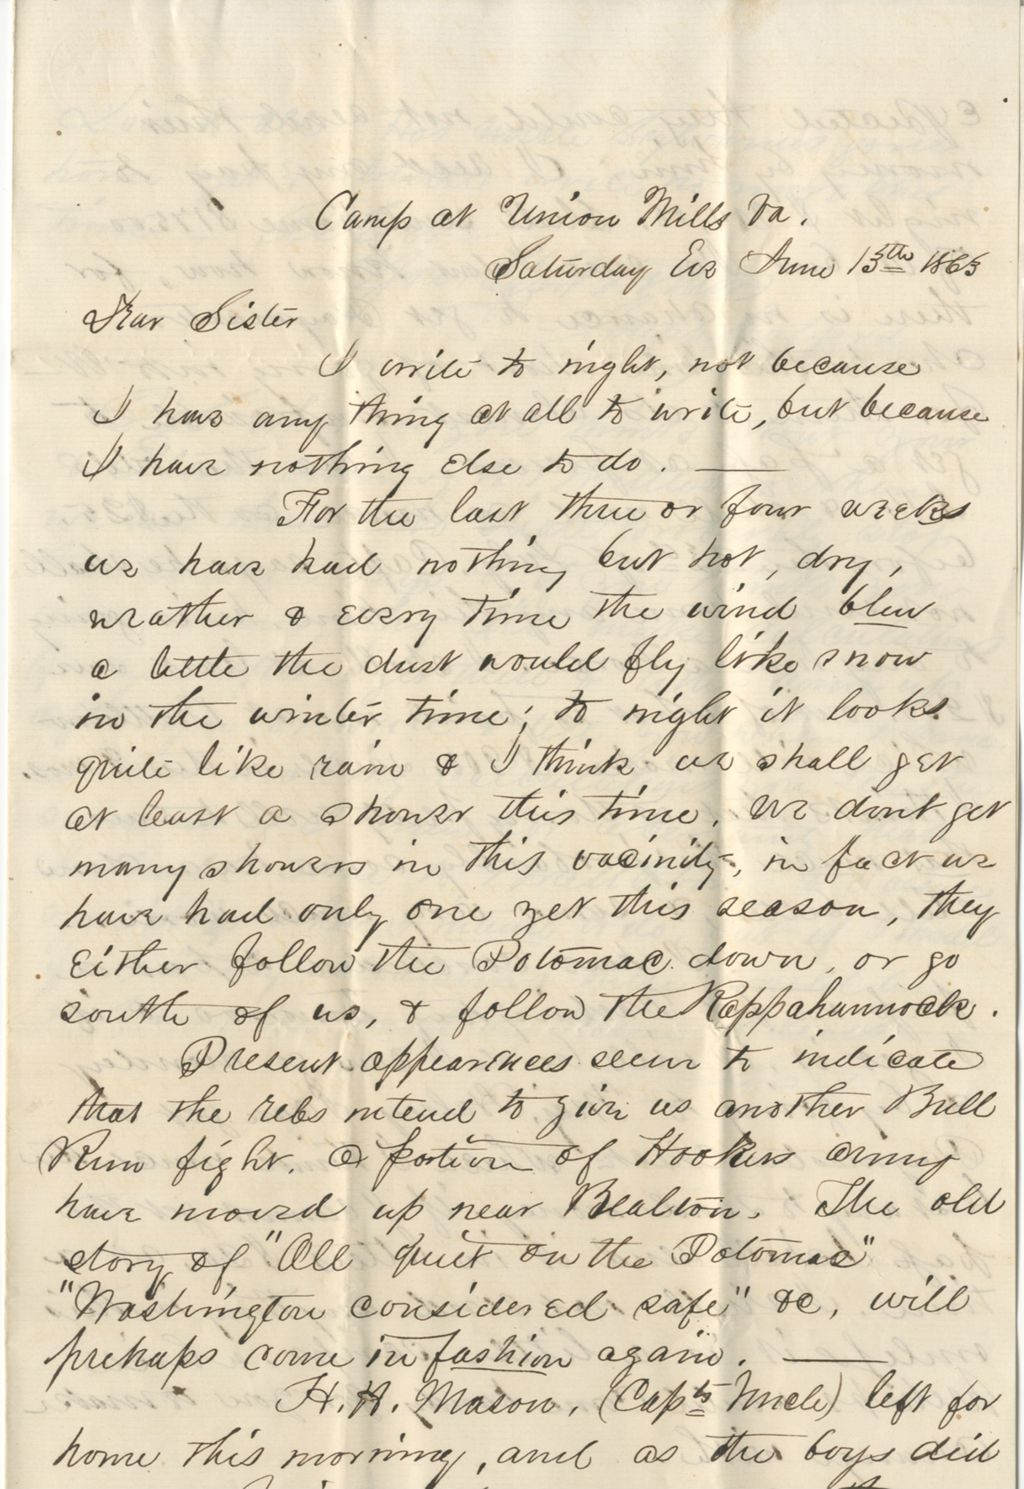 Camp at Union Mills Va.
Saturday Eve June 13th 1863
Dear Sister
I write to night, not because
I have any thing at all to write, but because
I have nothing else to do. —
For the last three or four weeks
we have had nothing but hot, dry,
weather & every time the wind blew
a little the dust would fly like snow
in the winter time; to night it looks
quite like rain & I think we shall get
at least a shower this time. We dont get
many showers in this vacinity, in fact we
have had only one yet this season, they
either follow the Potomac down, or go
south of us, & follow the Rappahannock.
Present appearances seem to indicate
that the rebs intend to give us another Bull
Run fight. A portion of Hookers army
have moved up near Bealton. The old
story of "All quiet on the Potomac"
"Washington considered safe" &c, will
perhaps come in fashion again. —
H. H. Mason, (Capts Uncle) left for
home this morning, and as the boys did